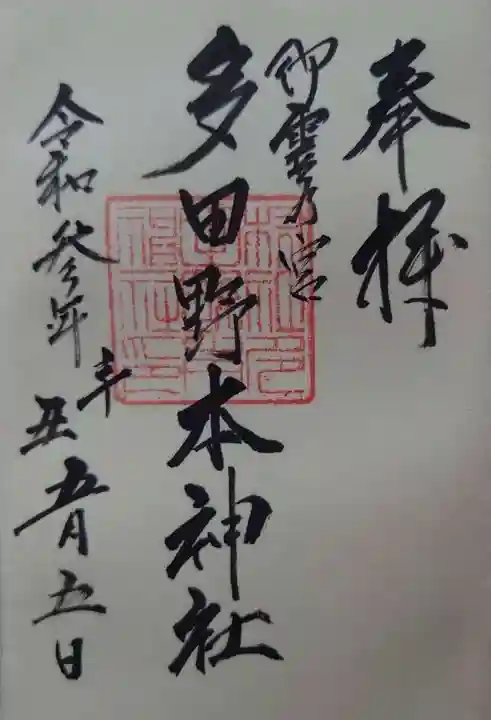 奉拝
御霊宮
多田野本神社
令和参年辛丑五月五日